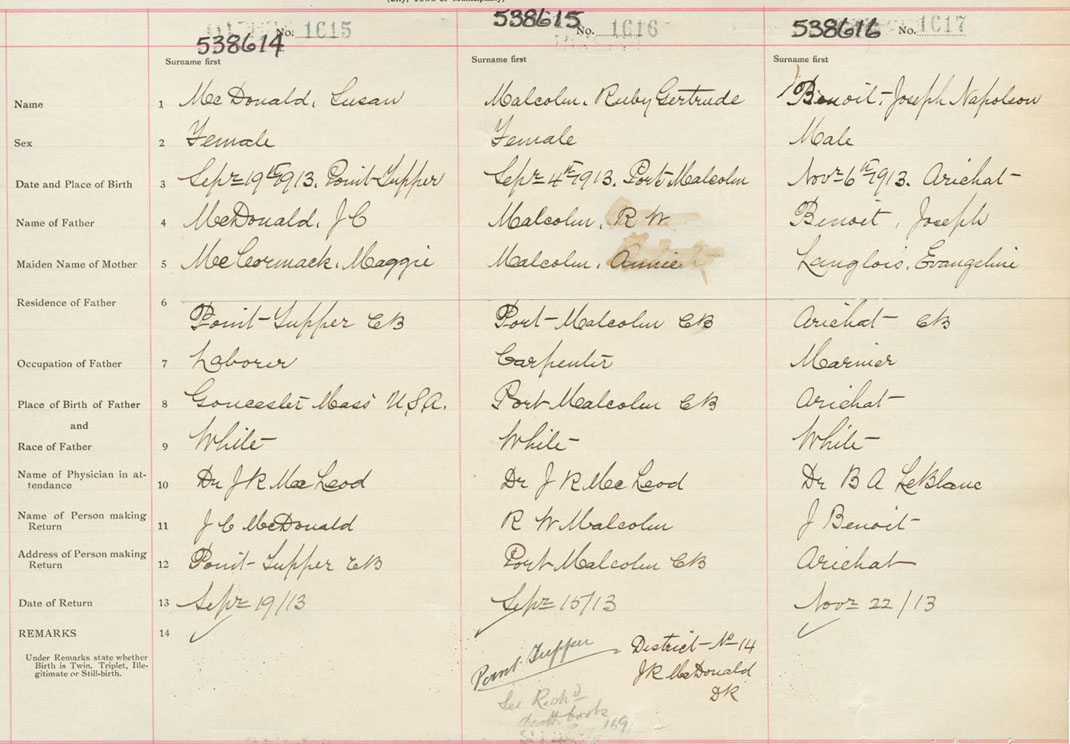 (City, Town or Municipality)
538614 No. 1615 538615 No. 1616 538616 No. 1617
Surname first Surname first Surname first
Name 1 McDonald, Susan Malcolm, Ruby Gertrude Benoit, Joseph Napoleon
Sex 2 Female Female Male
Date and Place of Birth 3 Sepr 19th 1913. Point Tupper Sepr 4th 1913. Port Malcolm Novr 6th 1913. Arichat
Name of Father 4 McDonald, J C Malcolm, R W Benoit, Joseph
Maiden Name of Mother 5 McCormack, Maggie Malcolm, Annie Langlois, Evangeline
Residence of Father 6 Point Tupper CB Port Malcolm CB Arichat CB
Occupation of Father 7 Laborer Carpenter Marnier
Place of Birth of Father 8 Goucester Mass U.S.A. Port Malcolm CB Arichat
and
Race of Father 9 White White White
Name of Physician in at-
tendance 10 Dr J R MacLeod Dr J R MacLeod Dr B A LeBlanc
Name of Person making
Return 11 J C McDonald R W Malcolm J Benoit
Address of Person making
Return 12 Point Tupper CB Port Malcolm CB Arichat
Date of Return 13 Sepr 19/13 Sepr 15/13 Novr 22/13
REMARKS 14
Under Remarks state whether
Birth is Twin, Triplet, Ille-
gitimate or Still-birth.
Point Tupper District No 14
JR McDonald
DR
See Richd
death book
169